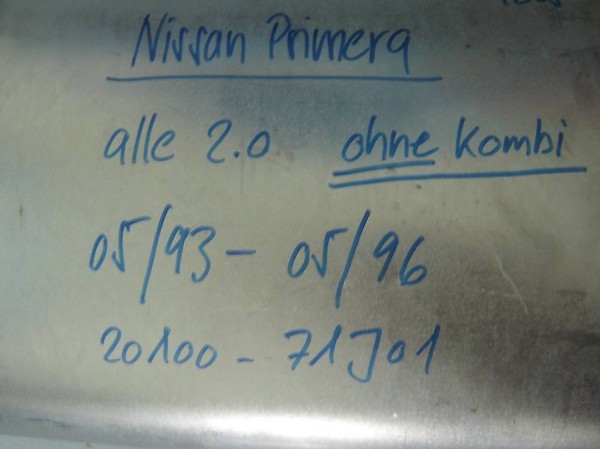 Nissan Primera
alle 2.0 ohne Kombi
05/93 - 05/96
20100 - 71J01